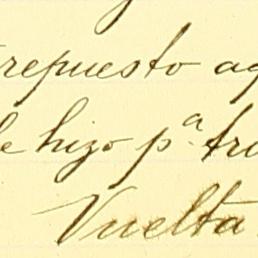 repuesto ag
le hizo pª tra
Vuelta